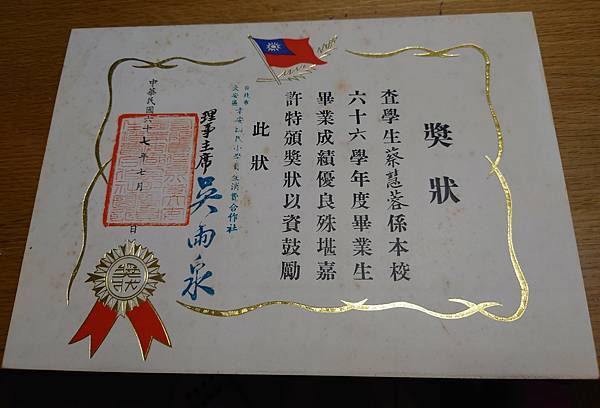 獎狀
查學生蔡慧蓉係本校
六十六學年度畢業生
畢業成績優良殊堪嘉
許特頒獎狀以資鼓勵
此狀
台北市
大安區幸安國民小學員生消費合作社
理事主席吳雨泉
中華民國六十七年七月日
獎狀